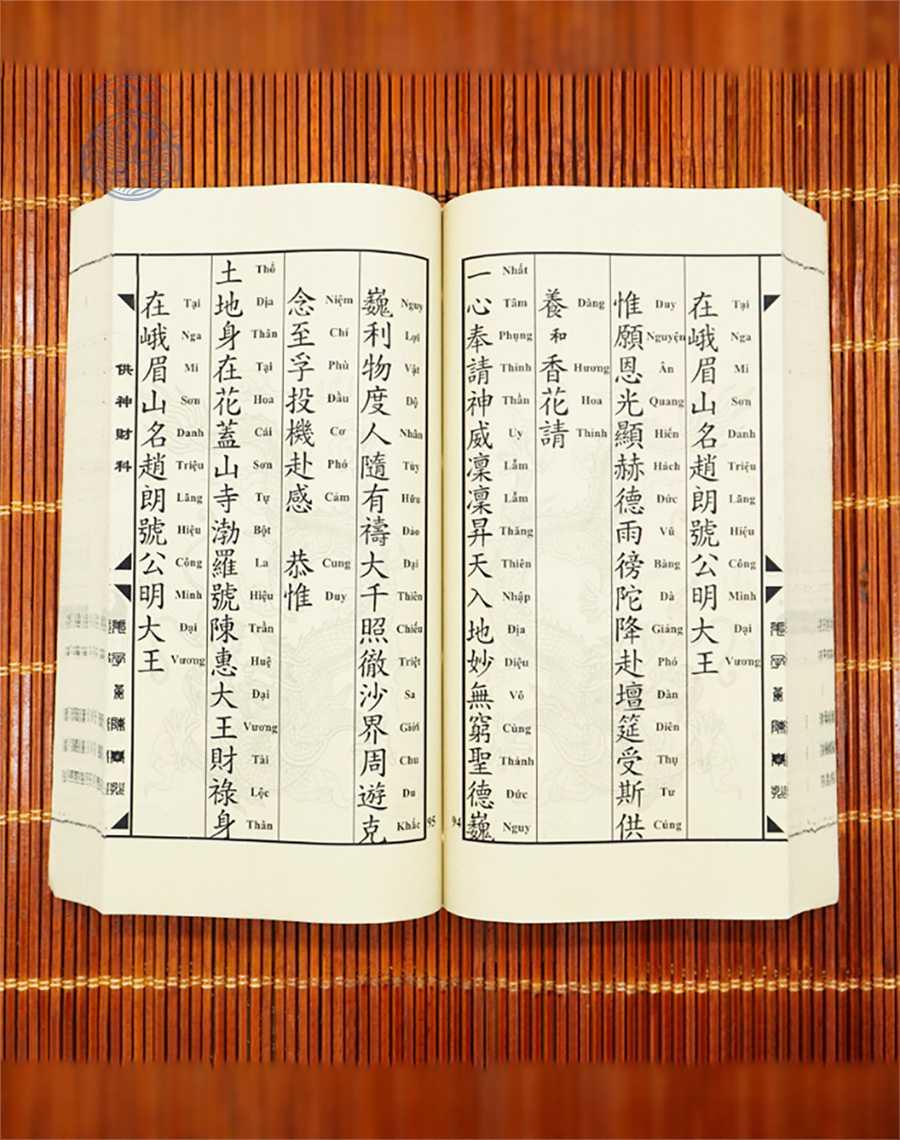 在峨眉山名趙朗號公明大王
Tại Nga Mi Sơn Danh Triệu Lãng Hiệu Công Minh Đại Vương
惟願恩光顯赫德雨徬陀降赴壇筵受斯供
Duy Nguyện Ân Quang Hiển Hách Đức Vũ Bàng Dà Giáng Phó Đàn Diên Thụ Tư Cúng
養和香花請
Dàng Hương Hoa Thỉnh
一心奉請神威凜凜昇天入地妙無窮聖德巍
Nhất Tâm Phụng Thỉnh Thần Uy Lẫm Lẫm Thăng Thiên Nhập Địa Diệu Vô Cùng Thánh Đức Nguy
94
巍利物度人隨有禱大千照徹沙界周遊克
Nguy Lợi Vật Độ Nhân Tùy Hữu Đảo Đại Thiên Chiếu Triệt Sa Giới Chu Du Khắc
念至孚投機赴感 恭惟
Niệm Chí Phù Đầu Cơ Phó Cảm Cung Duy
土地身在花蓋山寺渤羅號陳惠大王財祿身
Thổ Địa Thân Tại Hoa Cái Sơn Tự Bột La Hiệu Trần Huệ Đại Vương Tài Lộc Thân
在峨眉山名趙朗號公明大王
Tại Nga Mi Sơn Danh Triệu Lãng Hiệu Công Minh Đại Vương
供神財科
95